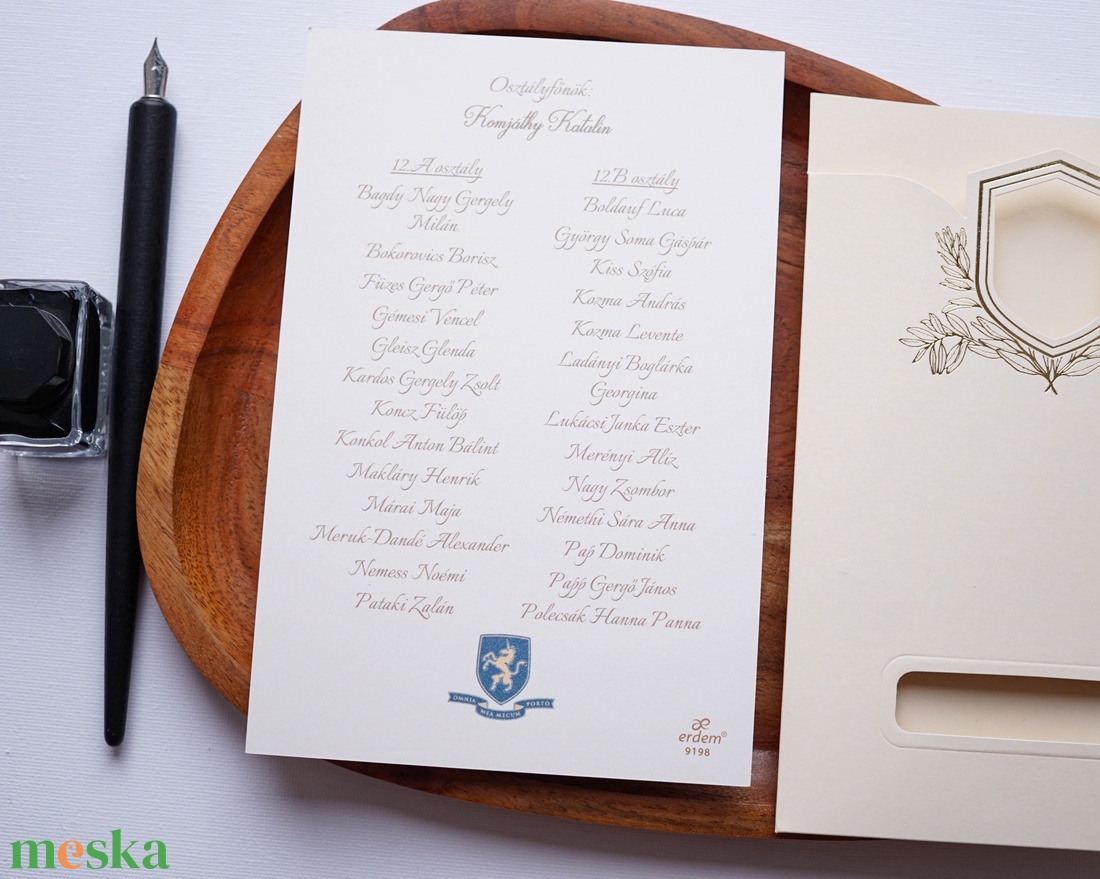 Osztályfőnök:
Komjáthy Katalin
12.A osztály
Bagdy Nagy Gergely
Milán
Bokorovics Borisz
Füzes Gergő Péter
Gémesi Vencel
Gleisz Glenda
Kardos Gergely Zsolt
Koncz Fülöp
Konkol Anton Bálint
Makláry Henrik
Márai Maja
Meruk-Dandé Alexander
Nemess Noémi
Pataki Zalán
12.B osztály
Boldauf Luca
György Soma Gáspár
Kiss Szófia
Kozma András
Kozma Levente
Ladányi Boglárka
Georgina
Lukácsi Janka Eszter
Merényi Alíz
Nagy Zsombor
Némethi Sára Anna
Pap Dominik
Papp Gergő János
Polecsák Hanna Panna
OMNIA
MEA MECUM
PORTO
æ
erdem®
9198
meska